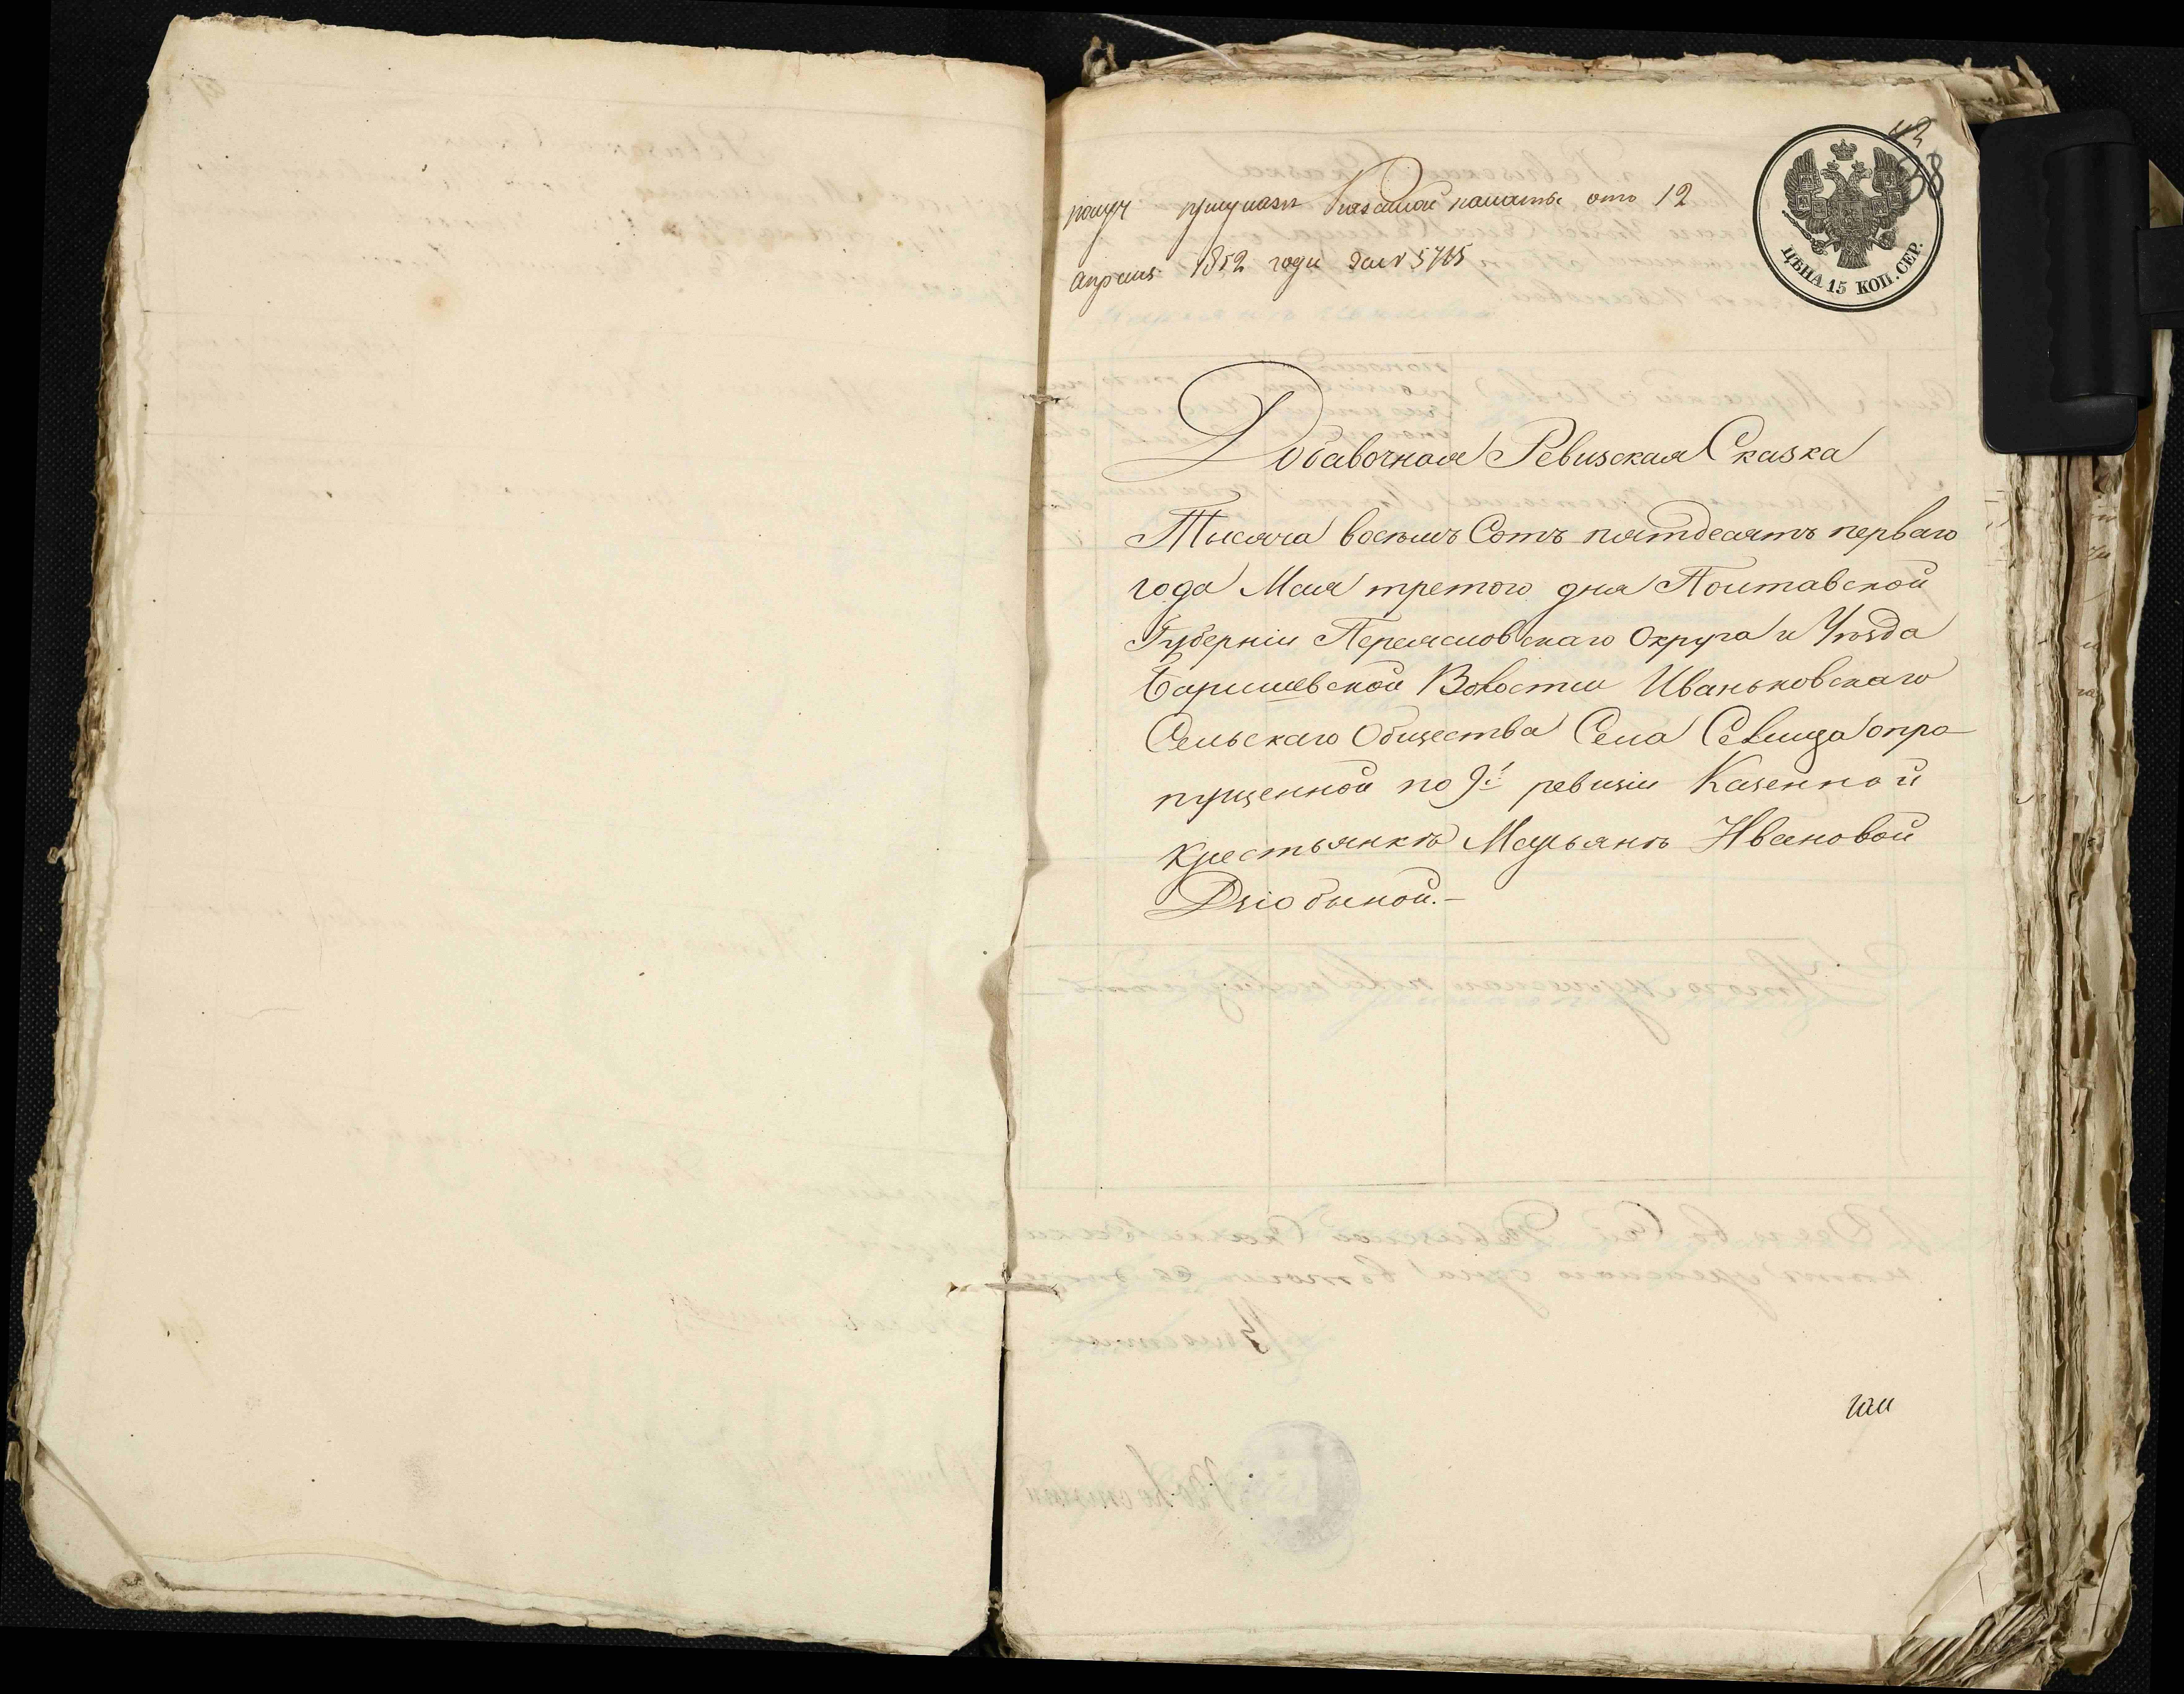 42
38
получ при указе Казенной палаты отъ 12
апреля 1852 года за № 5715
ЦѢНА 15 КОП. СЕР.
Добавочная Ревизская Сказка
Тысяча восемь Сотъ пятдесятъ перваго
года Мая третого дня Полтавской
Губерніи Переясловскаго Округа и Уѣзда
Баришевской Волости Иваньковскаго
Сельскаго Общества Села Селища о про-
пущенной по 9й ревизіи Казенной
крестьянкѣ Марьянѣ Ивановой